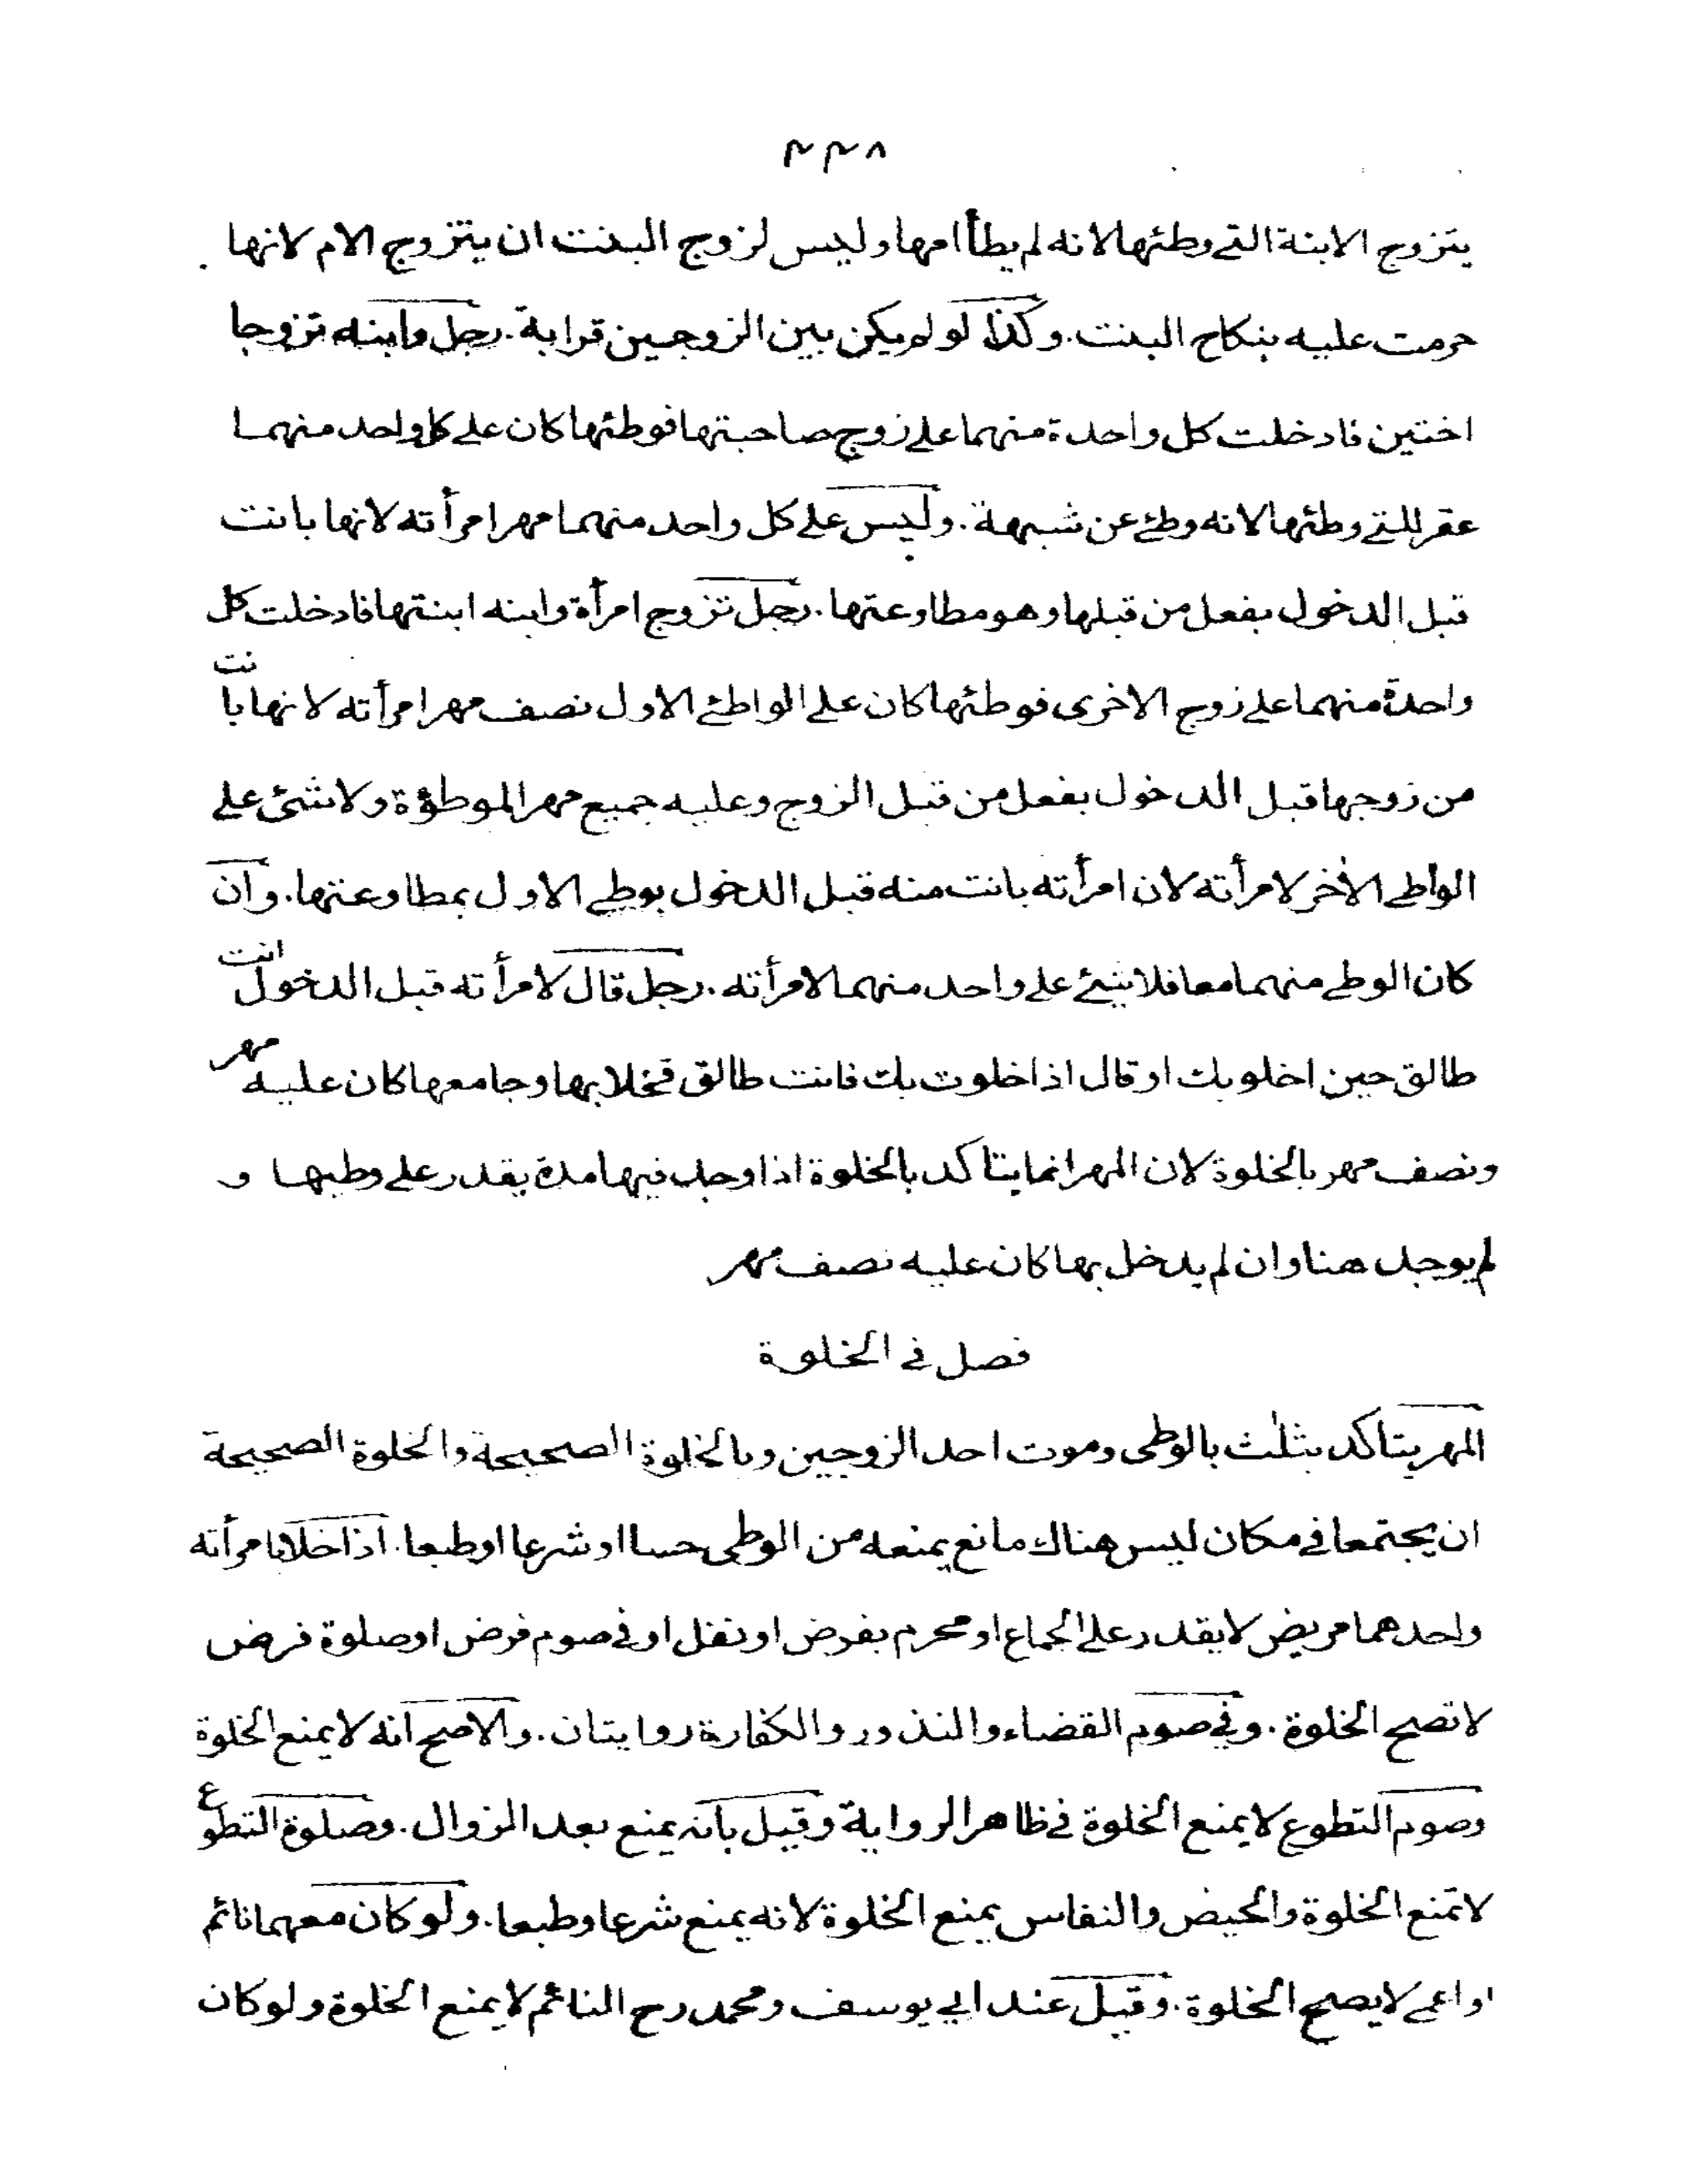 ٤٤٨
يتزوج الابنة التى وطئها لانه لم يطأ امها وليس لزوج البنت ان يتزوج الام لانها
حرمت عليه بنكاح البنت. وكذا لو لم يكن بين الزوجين قرابة. رجل وابنه تزوجا
اختين فادخلت كل واحدة منهما على زوج صاحبتها فوطئها كان على كل واحد منهما
عقر للتى وطئها لانه وطئ عن شبهة. وليس على كل واحد منهما مهر امرأته لانها بانت
قبل الدخول بفعل من قبلها وهو مطاوعتها. رجل تزوج امرأة وابنه ابنتها فادخلت كل
واحدة منهما على زوج الاخرى فوطئها كان على الواطئ الاول نصف مهر امرأته لانها بانت
من زوجها قبل الدخول بفعل من قبل الزوج وعليه جميع مهر الموطؤة ولا شئ على
الواطى الأخر لامرأته لان امرأته بانت منه قبل الدخول بوطى الاول بمطاوعتها. وان
كان الوطى منهما معا فلا شئ على واحد منهما لامرأته. رجل قال لامرأته قبل الدخول انت
طالق حين اخلو بك او قال اذا خلوت بك فانت طالق فخلا بها وجامعها كان عليه مهر
ونصف مهر بالخلوة لان المهر انما يتاكد بالخلوة اذا وجد فيها مدة يقدر على وطيها و
لم يوجد هنا وان لم يدخل بها كان عليه نصف مهر
فصل فى الخلوة
المهر يتاكد بثلث بالوطى وموت احد الزوجين وبالخلوة الصحيحة والخلوة الصحيحة
ان يجتمعا فى مكان ليس هناك مانع يمنعه من الوطى حسا او شرعا او طبعا. اذا خلا بامرأته
واحدهما مريض لا يقدر على الجماع او محرم بفرض او نفل او فى صوم فرض او صلوة فرض
لا تصح الخلوة. وفى صوم القضاء والنذور والكفارة روايتان. والاصح انه لا يمنع الخلوة
وصوم التطوع لا يمنع الخلوة فى ظاهر الرواية وقيل بانه يمنع بعد الزوال. وصلوة التطوع
لا تمنع الخلوة والحيض والنفاس يمنع الخلوة لانه يمنع شرعا وطبعا. ولو كان معهما نائم
او اعمى لا يصح الخلوة. وقيل عند ابى يوسف ومحمد رح النائم لا يمنع الخلوة ولو كان